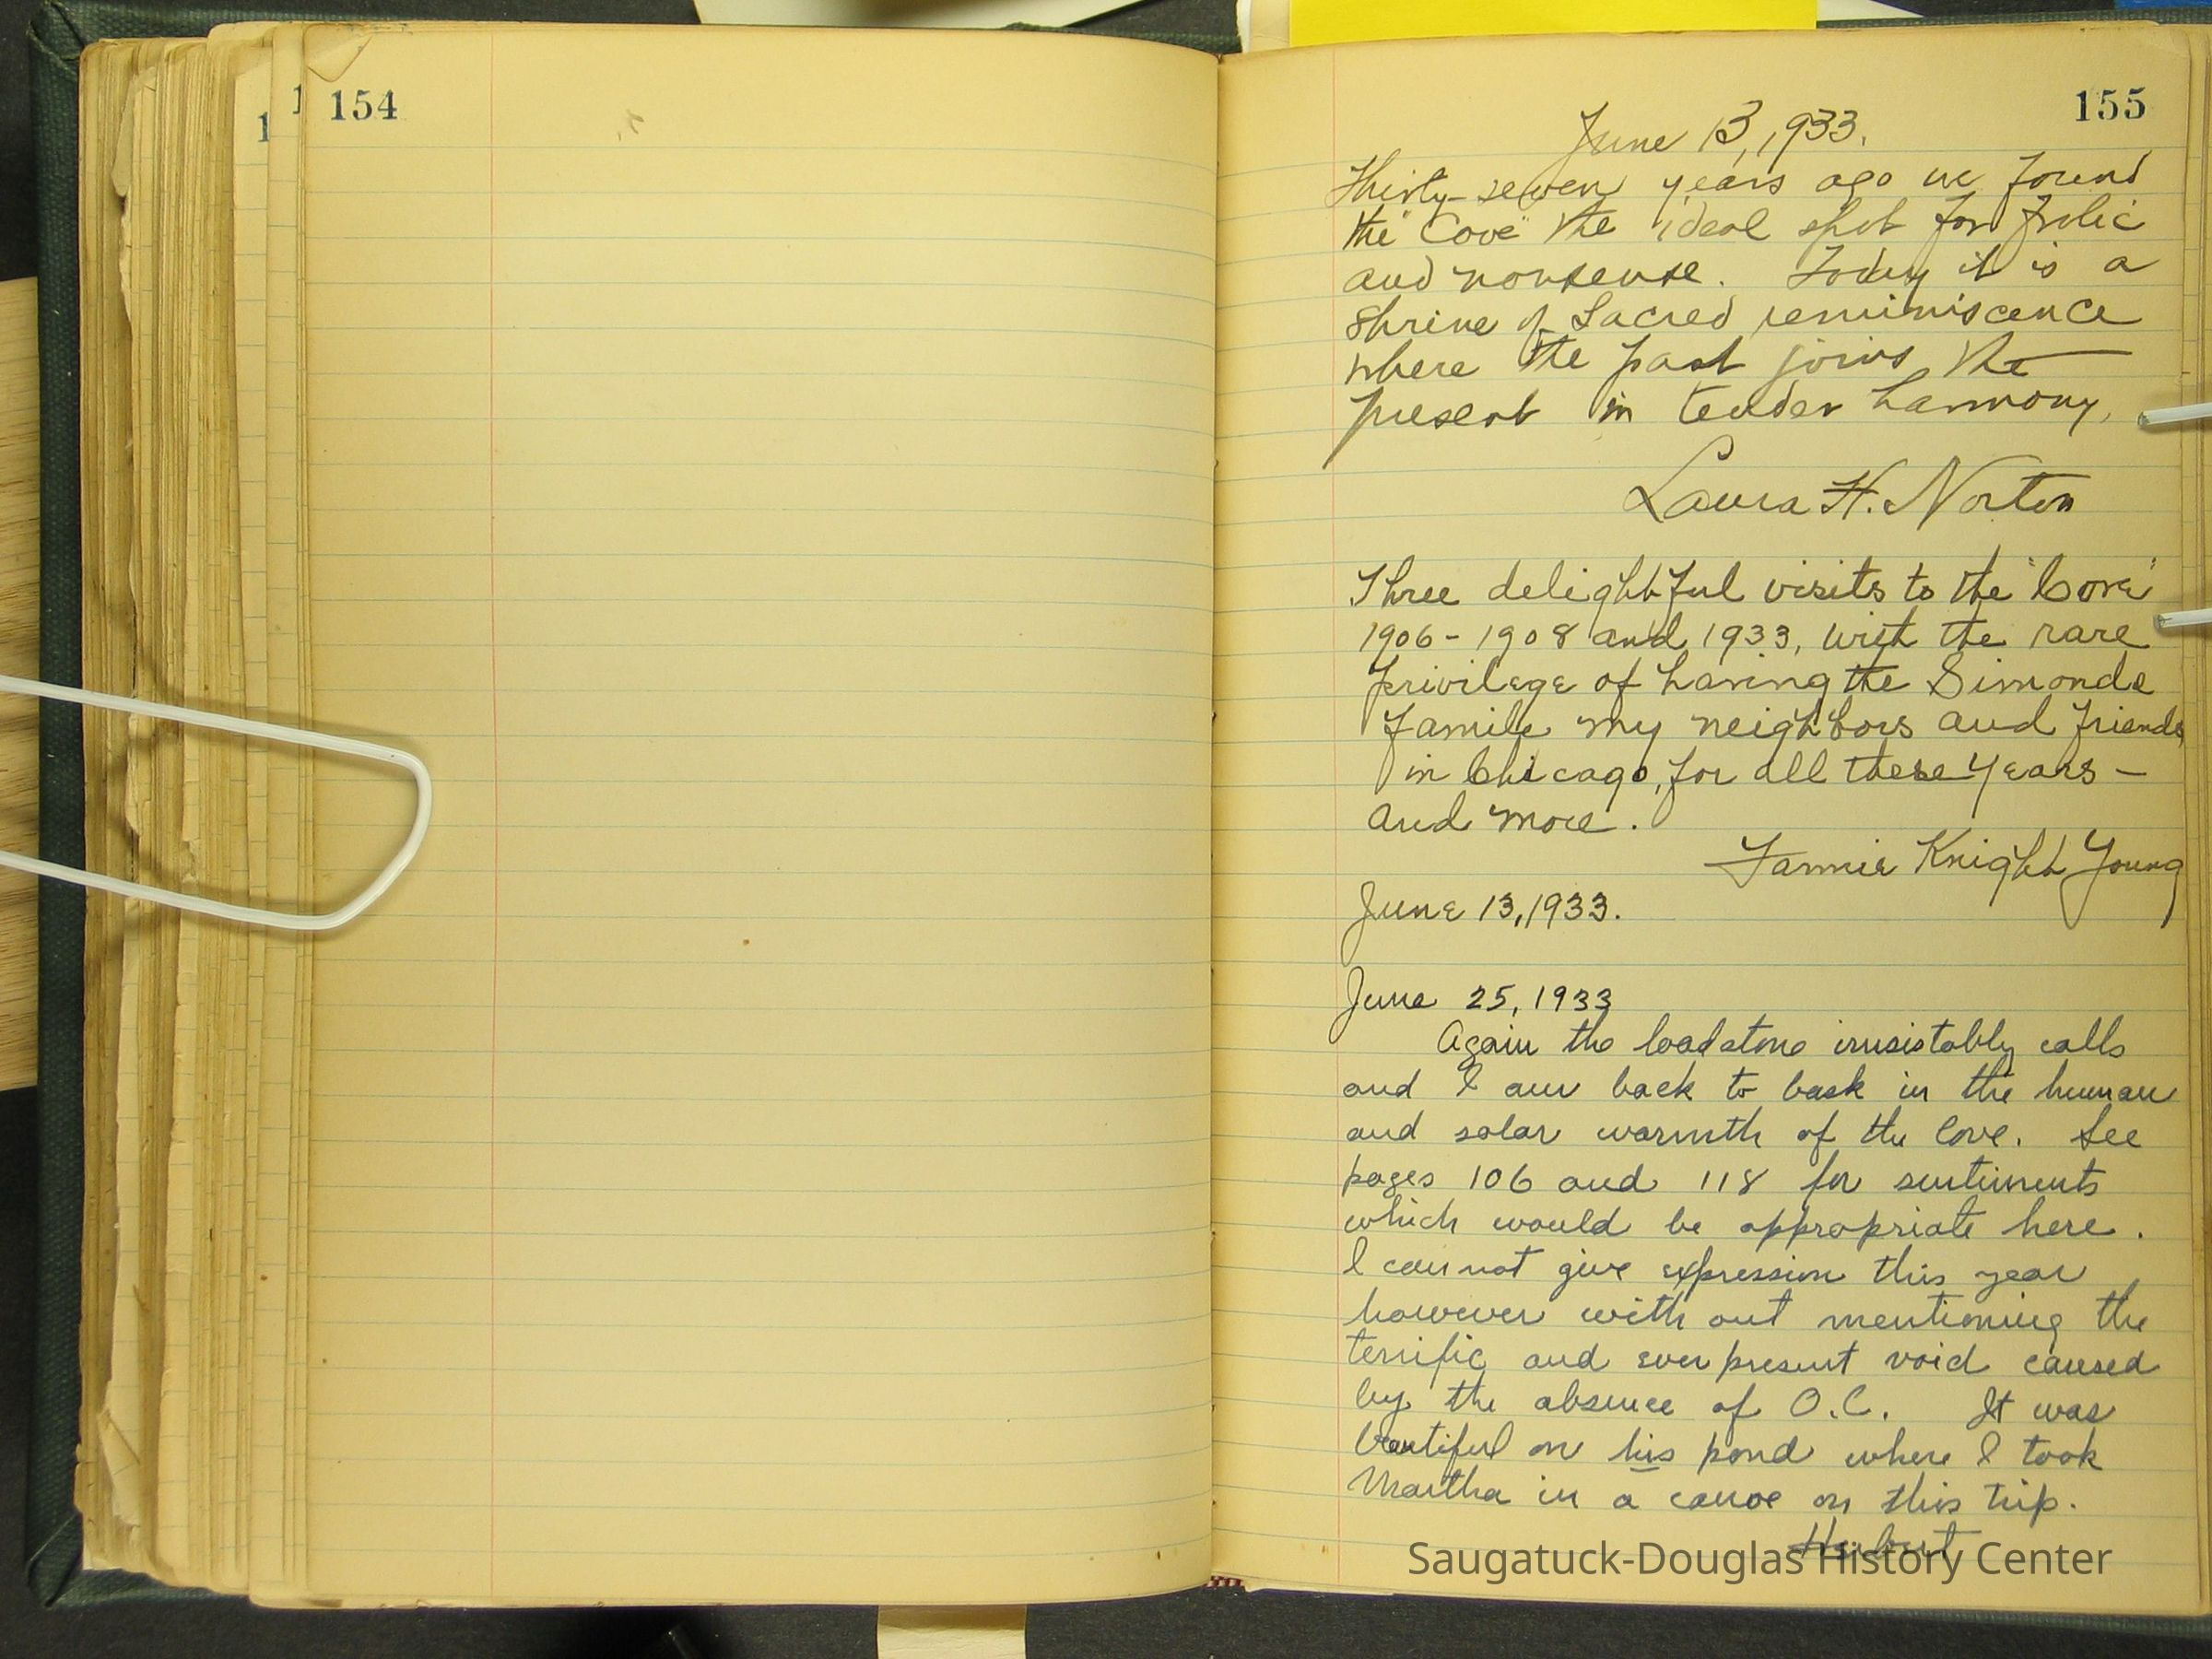 154
155
June 13, 1933.
Thirty-seven years ago we found
the "Cove" the ideal spot for frolic
and nonsense. Today it is a
shrine of Sacred reminiscence
where the past joins the
present in tender harmony.
Laura H. Norton
Three delightful visits to the "Cove"
1906 - 1908 and 1933, with the rare
privilege of having the Simonds
Family my neighbors and friends
in Chicago, for all these years -
and more.
Fannie Knight Young
June 13, 1933.
June 25, 1933
Again the loadstone irrisistably calls
and I am back to bask in the human
and solar warmth of the Cove. See
pages 106 and 118 for sentiments
which would be appropriate here.
I can not give expression this year
however with out mentioning the
terrific and ever present void caused
by the absence of O.C. It was
beautiful on his pond where I took
Martha in a canoe on this trip.
Herbert
Saugatuck-Douglas History Center